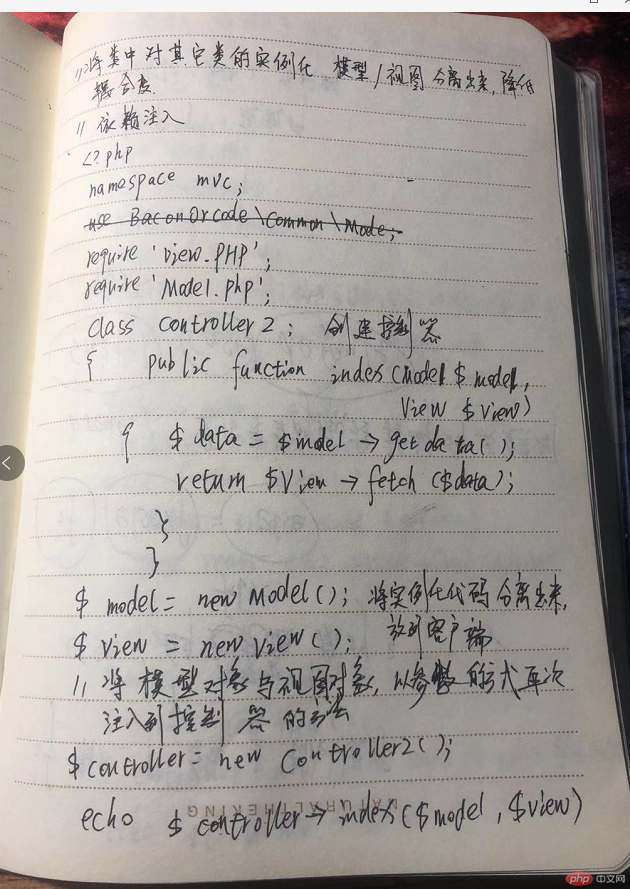 //将类中对其它类的实例化 模型/视图 分离出来,降低
耦合度.
// 依赖注入
<?php
namespace mvc;
use BaconQrcode\Common\Mode;
require 'view.PHP';
require 'Model.php';
class controller2; 创建控制器
{ public function index(Model $ model,
View $view)
{ $ data = $model → getdata();
return $View → fetch ($data);
}
}
$ model = new Model(); 将实例化代码分离出来,
$ view = new view(); 放到客户端
// 将模型对象与视图对象,以参数的方式再次
注入到控制器的方法
$ controller = new Controller2();
NATURALTHEKING
echo $ controller → index($model, $view)
php 中文网